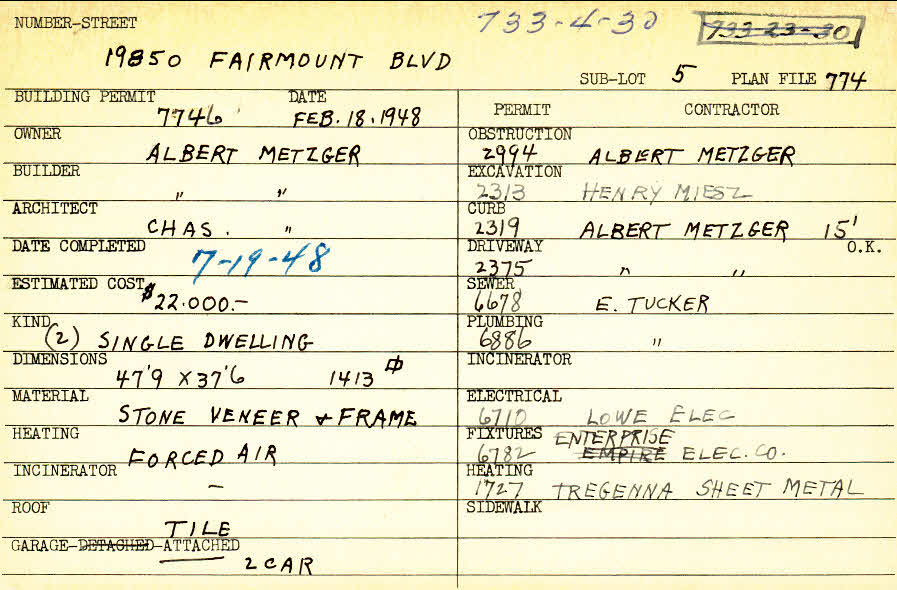 NUMBER-STREET 733-4-30 733-23-30
19850 FAIRMOUNT BLVD
SUB-LOT 5 PLAN FILE 774
BUILDING PERMIT DATE
7746 FEB. 18. 1948
OWNER
ALBERT METZGER
BUILDER
" "
ARCHITECT
CHAS. "
DATE COMPLETED
7-19-48
ESTIMATED COST
$22.000.-
KIND
(2) SINGLE DWELLING
DIMENSIONS
47'9 X 37'6 1413
MATERIAL
STONE VENEER + FRAME
HEATING
FORCED AIR
INCINERATOR
-
ROOF
TILE
GARAGE-DETACHED-ATTACHED
2 CAR
PERMIT CONTRACTOR
OBSTRUCTION
2994 ALBERT METZGER
EXCAVATION
2313 HENRY MIESZ
CURB
2319 ALBERT METZGER 15'
DRIVEWAY O.K.
2375 " "
SEWER
6678 E. TUCKER
PLUMBING
6886 "
INCINERATOR
ELECTRICAL
6710 LOWE ELEC
FIXTURES ENTERPRISE
6782 EMPIRE ELEC. CO.
HEATING
1727 TREGENNA SHEET METAL
SIDEWALK